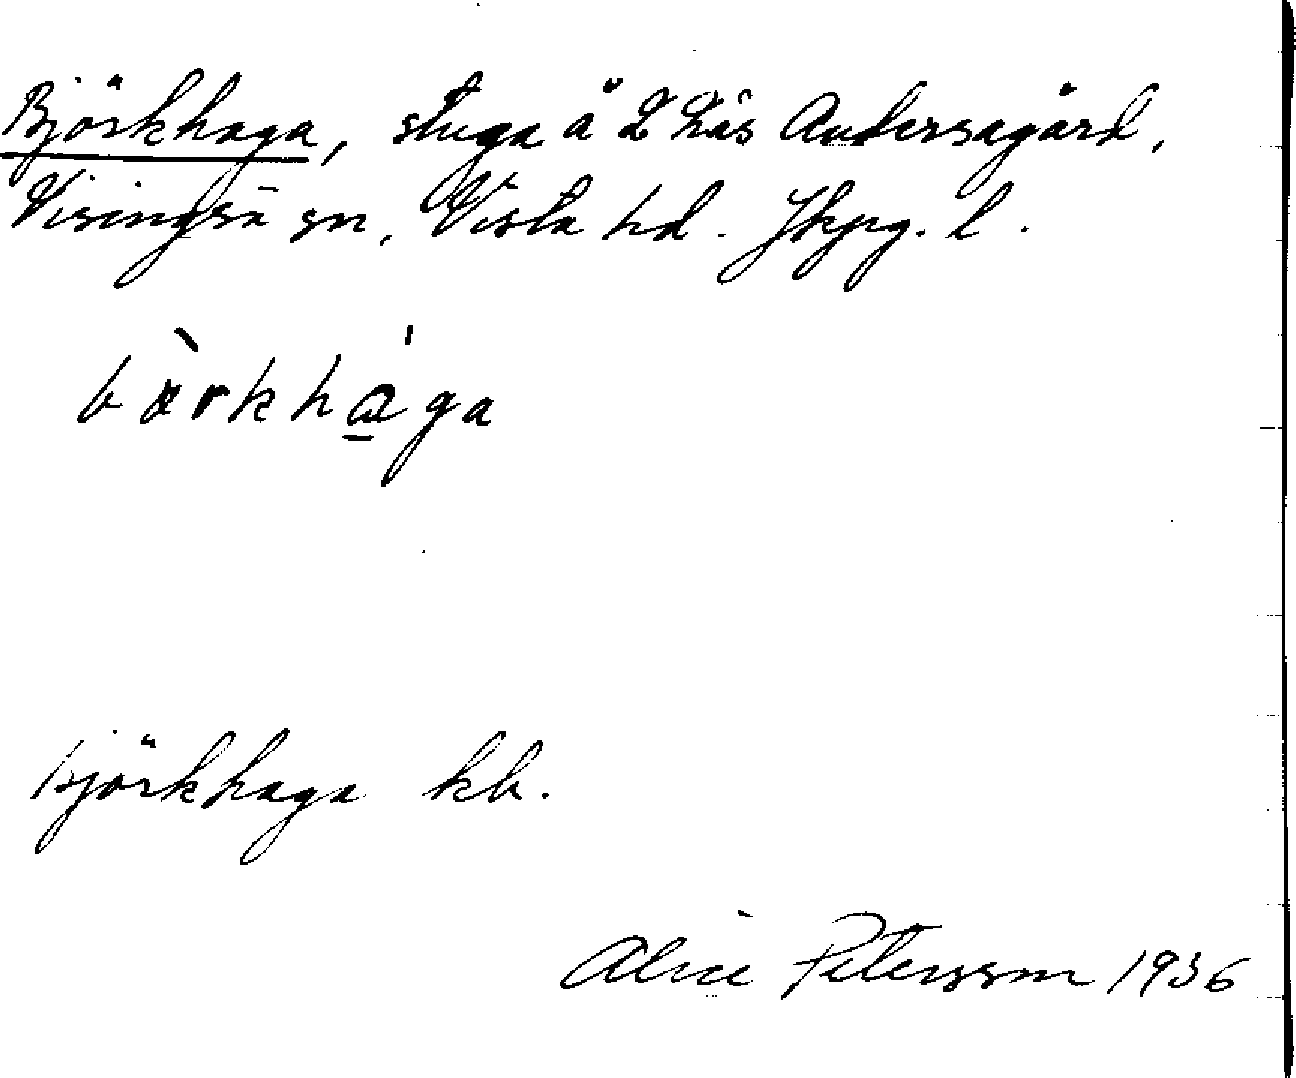 Björkhaga, stuga å 2 Näs Andersagård,
Visingsö sn, Vista hd. Jkpg. l.
bö̀rkhá̱ga
Björkhaga kb.
Alice Petersson 1936